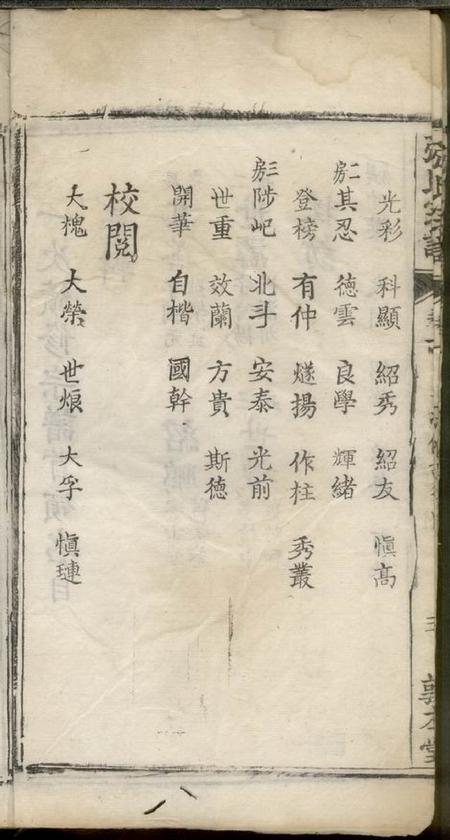 光彩 科顯 紹秀 紹友 愼高
二房 其忍 德雲 良學 輝緒
登榜 有仲 燧揚 作柱 秀叢
三房 陟屺 北斗 安泰 光前
世重 效蘭 方貴 斯德
開華 自楷 國幹
校閲
大槐 大榮 世烺 大孚 愼璉